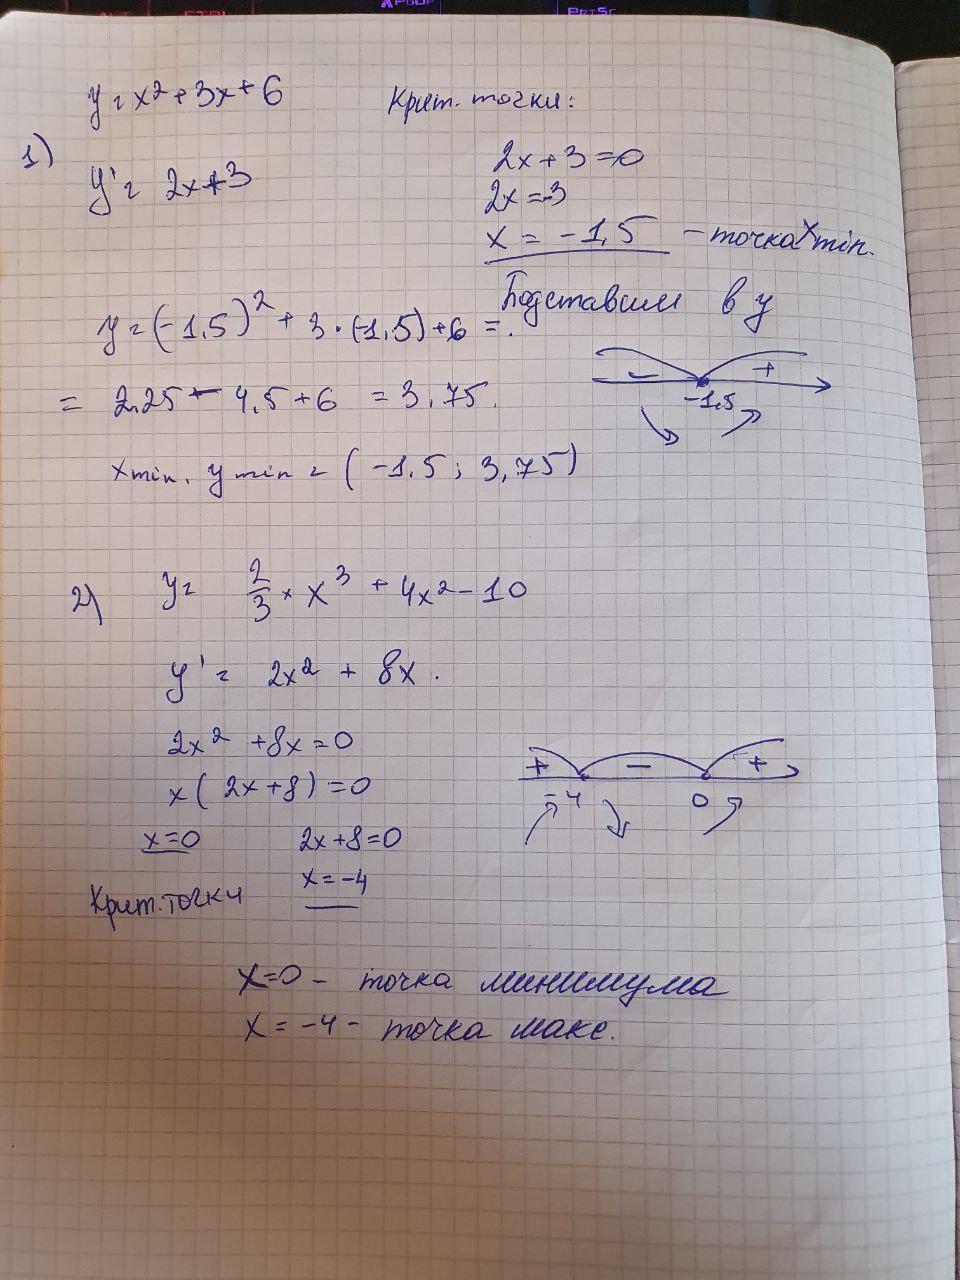 y = x² + 3x + 6
Крит. точки:
1)
y' = 2x + 3
2x + 3 = 0
2x = -3
x = -1,5 - точка xmin.
Подставим в y
y = (-1,5)² + 3 · (-1,5) + 6 =
= 2,25 - 4,5 + 6 = 3,75.
- +
-1,5
xmin. ymin = (-1,5 ; 3,75)
2) y = 2/3 × x³ + 4x² - 10
y' = 2x² + 8x.
2x² + 8x = 0
x ( 2x + 8 ) = 0
+ - +
-4 0
x = 0 2x + 8 = 0
x = -4
Крит. точки
x = 0 - точка минимума
x = -4 - точка макс.